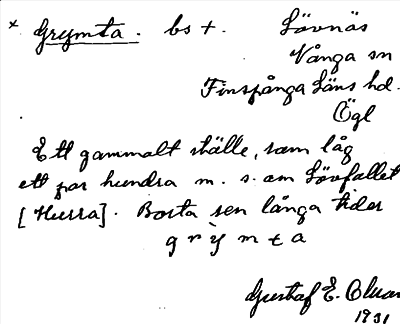 × Grymta. bs t. Lövnäs
Vånga sn
Finspånga Läns hd.
Ögl
Ett gammalt ställe, som låg
ett par hundra m. s. om Lövfallet
[Hussa]. Borta sen långa tider
g r ỳ m t a
Gustaf E.
1931